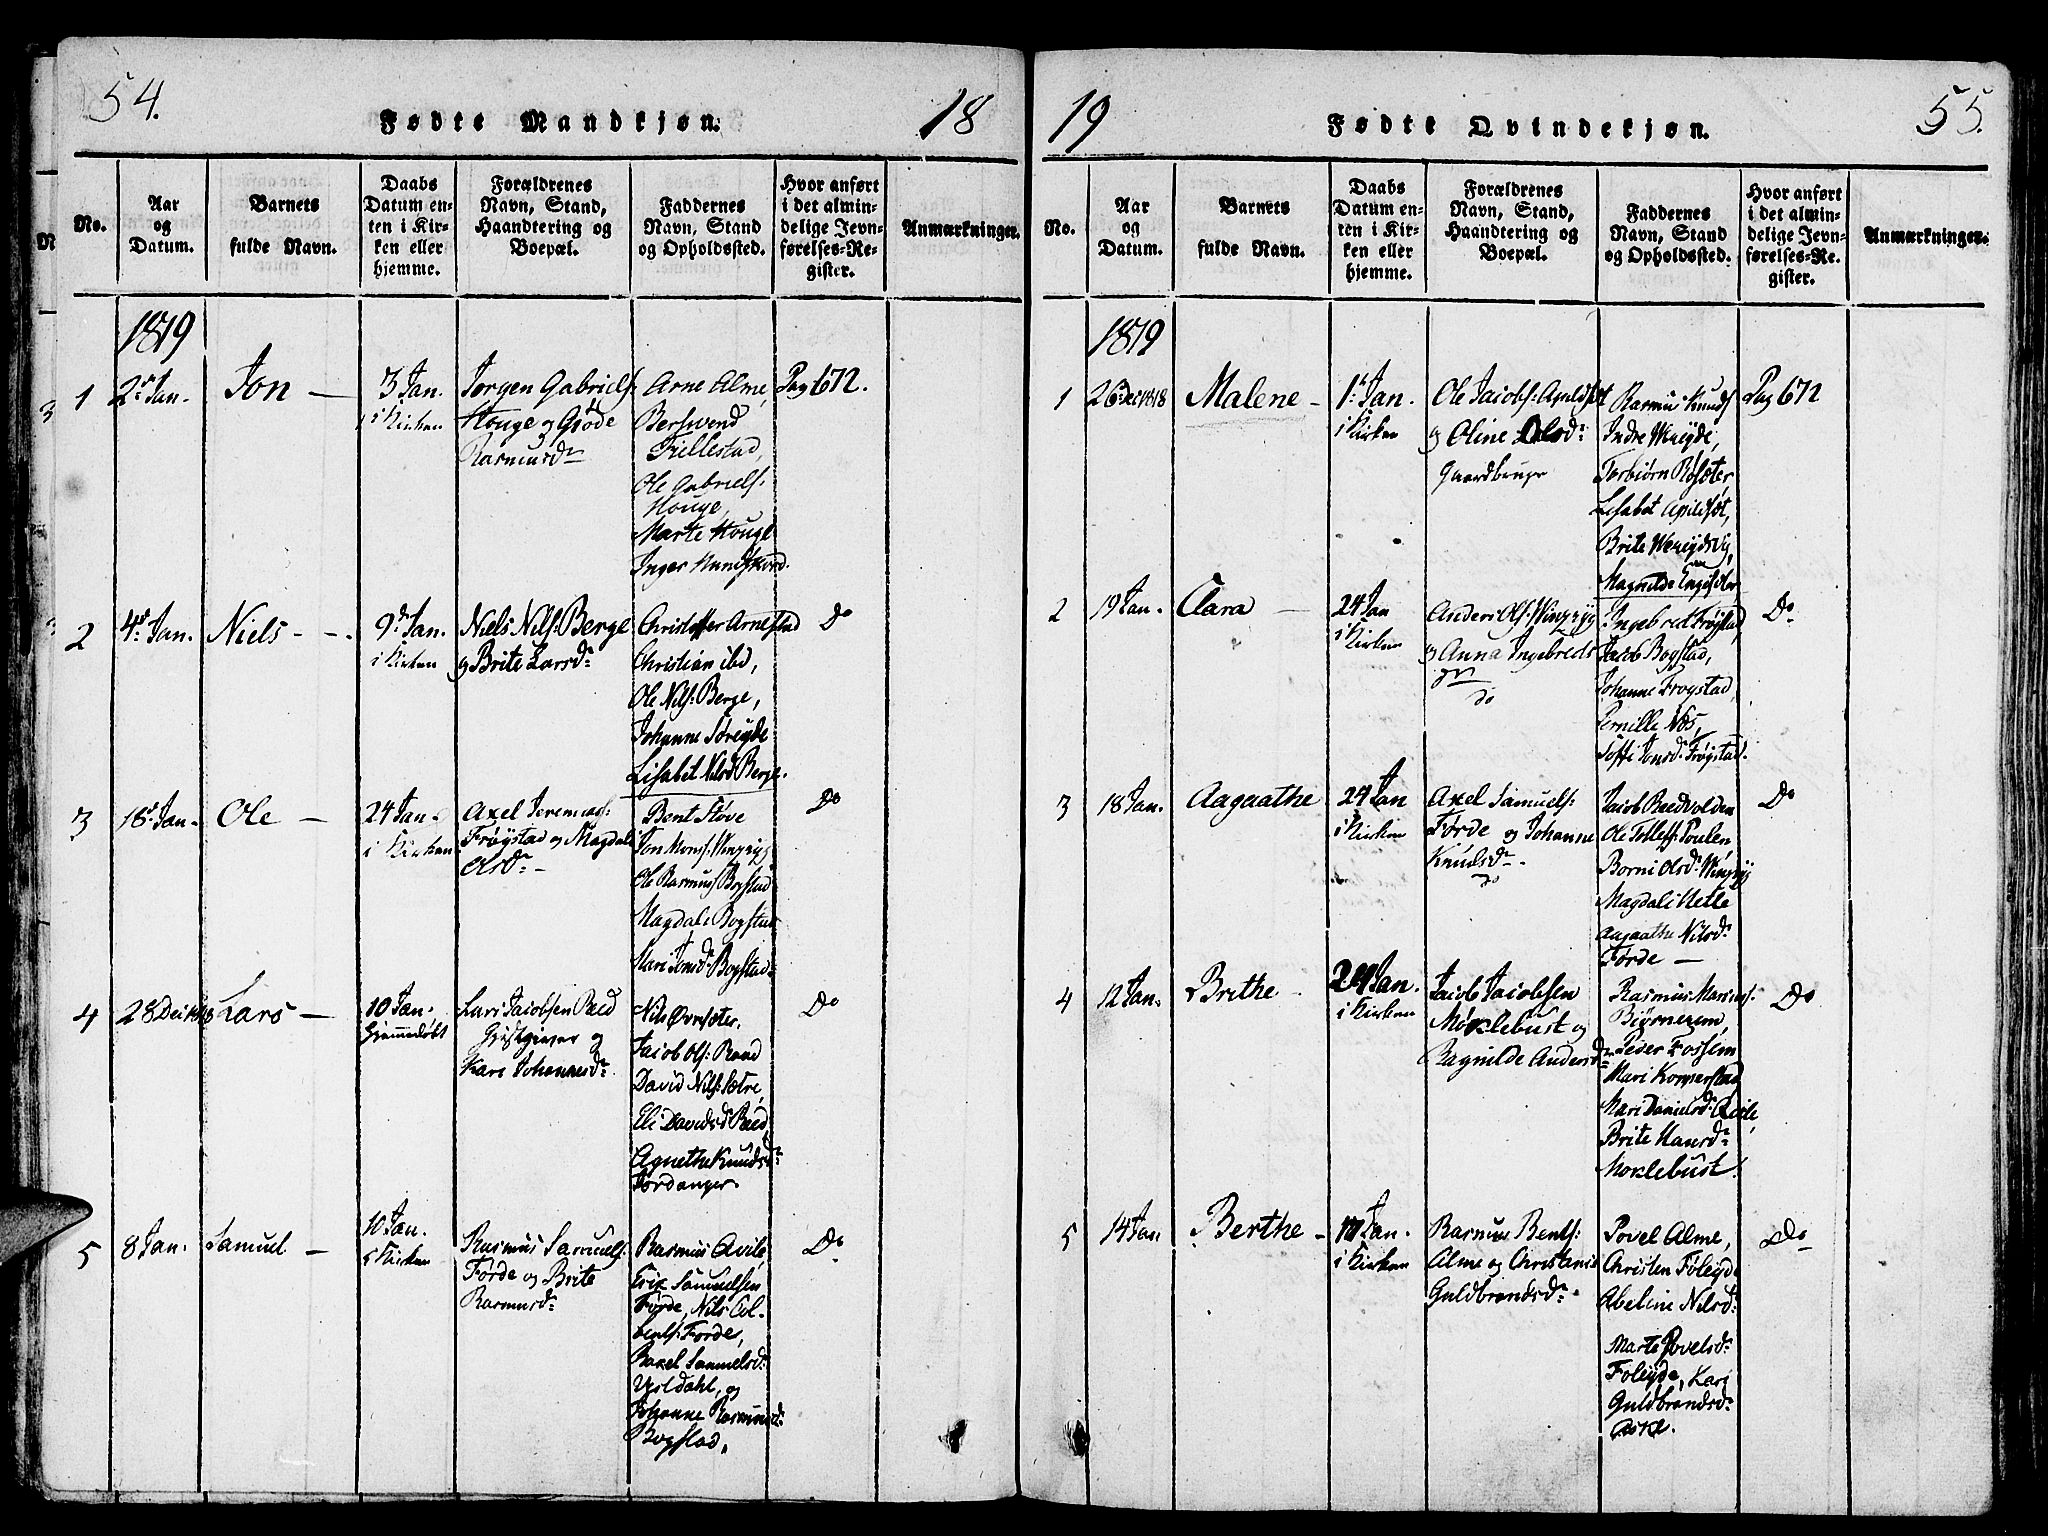 54.
Fødte Mandkjøn.
18
No.
Aar
og
Datum.
Barnets
fulde Navn.
Daabs
Datum en-
ten i Kir-
ken eller
hjemme.
Forældrenes
Navn, Stand,
Haandtering og
Boepæl.
Faddernes
Navn, Stand
og Opholdssted.
Hvor anført
i det almin-
delige Jevn-
førelses-Re-
gister.
Anmærkninger.
1819
1
2 Jan.
Jon —
3 Jan.
i Kirken
Jørgen Gabriels:
Houge og Gjøde
Rasmusdr
Arne Alme,
Bersvend
Trillestad,
Ole Gabriels:
Houge,
Marte Houge
Inger Hundskord.
Pag 672.
2
4 Jan.
Niels
9 Jan.
i Kirken
Niels Nils: Berge
og Brite Larsdr
Christoffer Arnestad
Christian ibd,
Ole Nils: Berge,
Johanne Søreyde
Lisabet Nilsd Berge.
Do
3
18 Jan.
Ole —
24 Jan.
i Kirken
Axel Jeremias:
Frøystad og Magdali
Olsdr —
Bent Støve
Jon Mons: Wingryg
Ole Rasmus Bogstad
Magdali Bogstad
Mari Jonsd Bogstad
Do
4
28 Dec 1818
Lars —
10 Jan.
Hjemmedøbt
Lars Jacobsen Ræd
Giestgiver og
Kari Johannesdr
Nils Øvresæter.
Jacob Ols: Rand
David Nils: Sætre,
Eli Davidsd Ræd
Agnethe Knudsdr
Jordanger.
Do
5
8 Jan.
Samuel —
10 Jan.
i Kirken
Rasmus Samuels:
Førde og Brite
Rasmusdr
Rasmus Qvile,
Erik Samuelsen
Førde, Nils Col-
bents: Førde,
Baxel Samuelsd
Myldahl, og
Johanne Rasmusd
Bogstad.
Do
19
Fødte Qvindekjøn.
55.
No.
Aar
og
Datum.
Barnets
fulde Navn.
Daabs
Datum en-
ten i Kir-
ken eller
hjemme.
Forældrenes
Navn, Stand,
Haandtering og
Boepæl.
Faddernes
Navn, Stand
og Opholdssted.
Hvor anført
i det almin-
delige Jevn-
førelses-Re-
gister.
Anmærkninger.
1819
1
26 Dec 1818
Malene —
1 Jan.
i Kirken
Ole Jacobs: Apildset
og Oline Olsdr
Gaardbruger
Rasmus Knuds
Indre Wereyde,
Torbiørn Røsæter
Lisabet Apildset,
Brite Wereyde
Magnilde Engesæter
Pag 672
2
19 Jan.
Clara —
24 Jan
i Kirken
Anders Ols: Wingryg
og Anna Ingebreds
dr
do
Ingebred Frøystad,
Jacob Bogstad,
Johanne Frøystad,
Pernille Nøs,
Soffi Jonsd Frøystad.
Do
3
18 Jan.
Aagaathe
24 Jan
i Kirken
Axel Samuels:
Førde og Johanne
Knudsdr
do
Jacob Rædvolden
Ole Tollefs: Poulen
Borni Olsd Wingryg
Magdali Hetle
Aagaathe Nilsdr
Førde —
Do
4
12 Jan.
Brithe
24 Jan.
i Kirken
Jacob Jacobsen
Møklebust og
Ragnilde Andersdr
Rasmus
Biørnerem,
Peder Fosheim
Mari Kopperstad
Mari Danielsd Qvile,
Brite Hansdr
Moklebust.
Do
5
14 Jan
Berthe —
17 Jan.
i Kirken
Rasmus Bents:
Alme og Christanie
Guldbrandsdr
Povel Alme,
Christen Føleyde
Abeline Nilsd
Marte Povelsdr
Føleyde, Kari
Guldbrandsdr
Aske.
Do